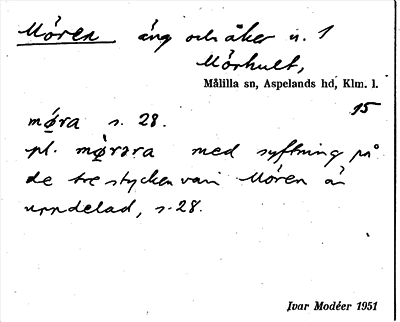 Mören äng och åker n. 1
Mörhult,
Målilla sn, Aspelands hd, Klm. l.
15
mø̀ra s. 28.
pl. mø̀rəra med syftning på
de tre stycken vari Mören är
uppdelad, s. 28.
Ivar Modéer 1951